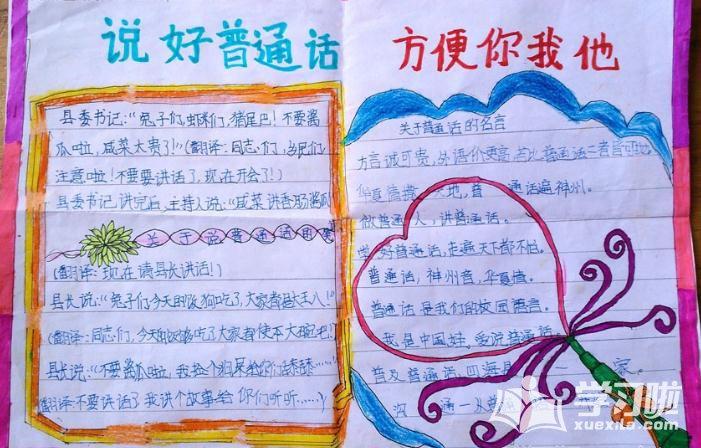 说好普通话 方便你我他
县委书记:“兔子们,虾米们,猪尾巴!不要酱
瓜啦,咸菜太贵了!”(翻译:同志们,乡民们,
注意啦!不要讲话了,现在开会了!)
县委书记讲完后,主持人说:“咸菜讲香肠酱瓜!”
关于说普通话用
(翻译:现在请县长讲话!)
县长说:“兔子们今天的饭狗吃了,大家都是大王八!”
(翻译:同志们,今天的饭够吃了大家都使
县长说:“不要酱瓜啦,我捡个狗屎给你们舔舔……
翻译:不要讲话了我讲个故事给你们听听……)
关于普通话的名言
方言诚可贵,外语价更高,若比普通话三者皆可抛。
华夏 大地,普 通话遍神州。
做普通人,讲普通话。
学好普通话,走遍天下都不怕。
普通话,神州音,华夏情。
普通话是我们的校园语言。
我是中国娃,爱说普通话
普及普通话,四海 一家。
沟 通
学习啦
xuexila.com